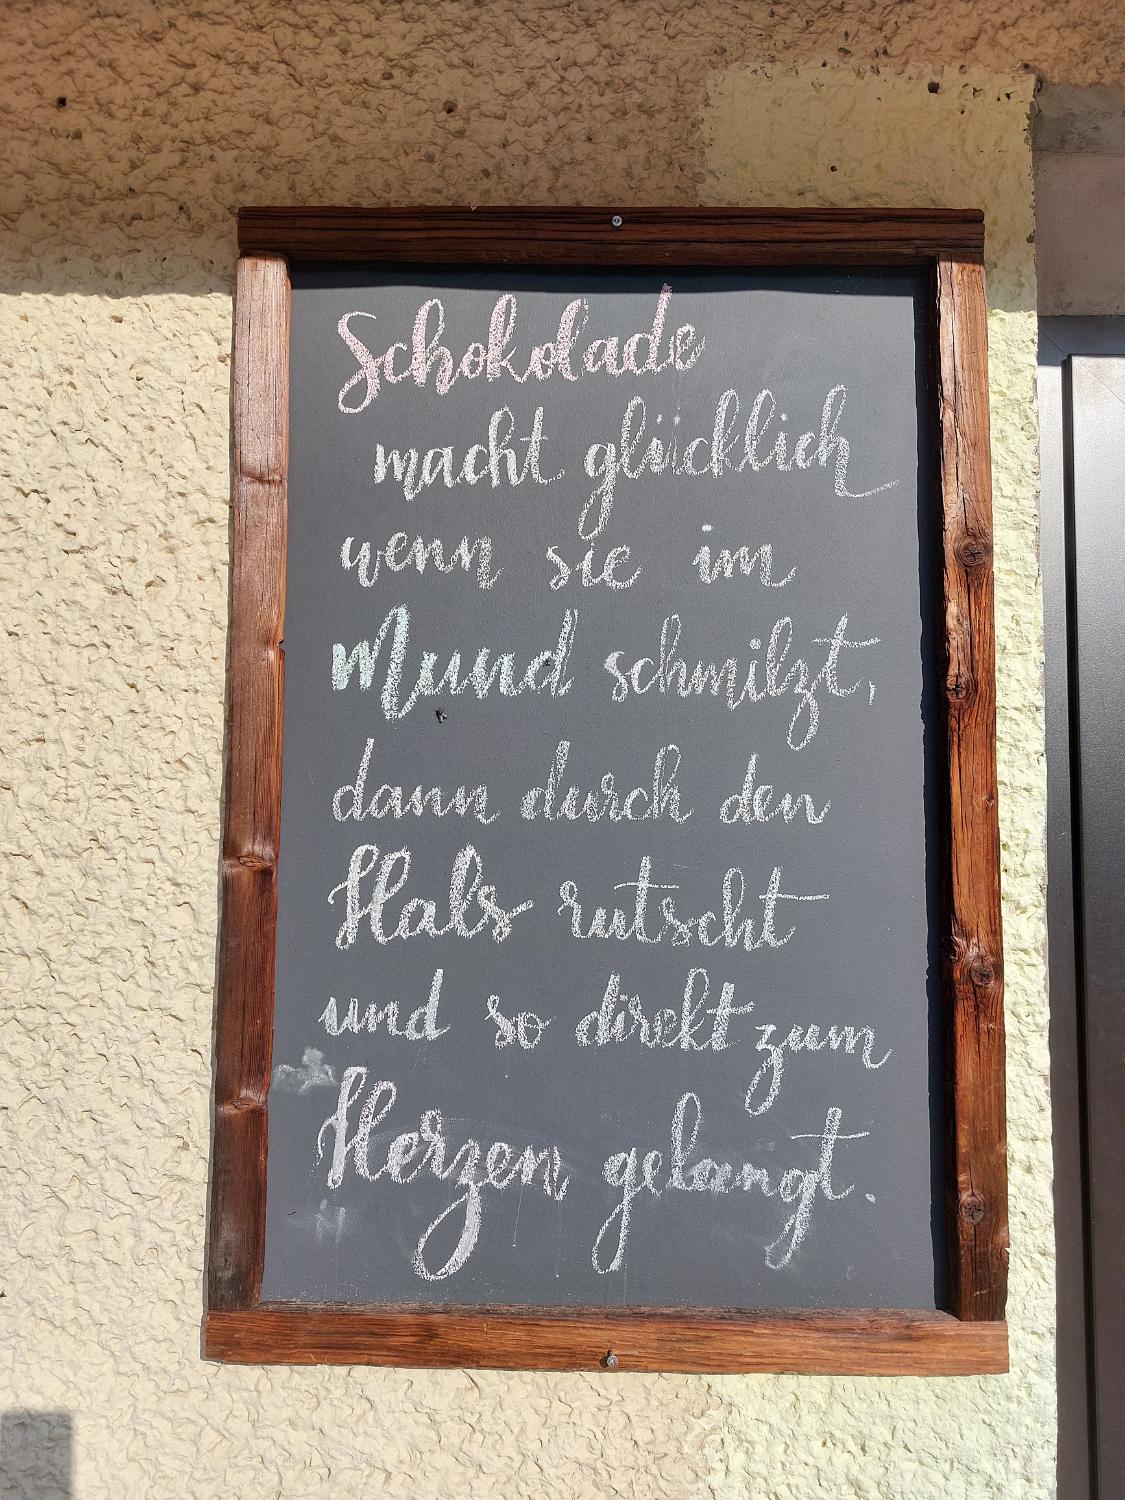 Schokolade
macht glücklich
wenn sie im
Mund schmilzt,
dann durch den
Hals rutscht
und so direkt zum
Herzen gelangt.